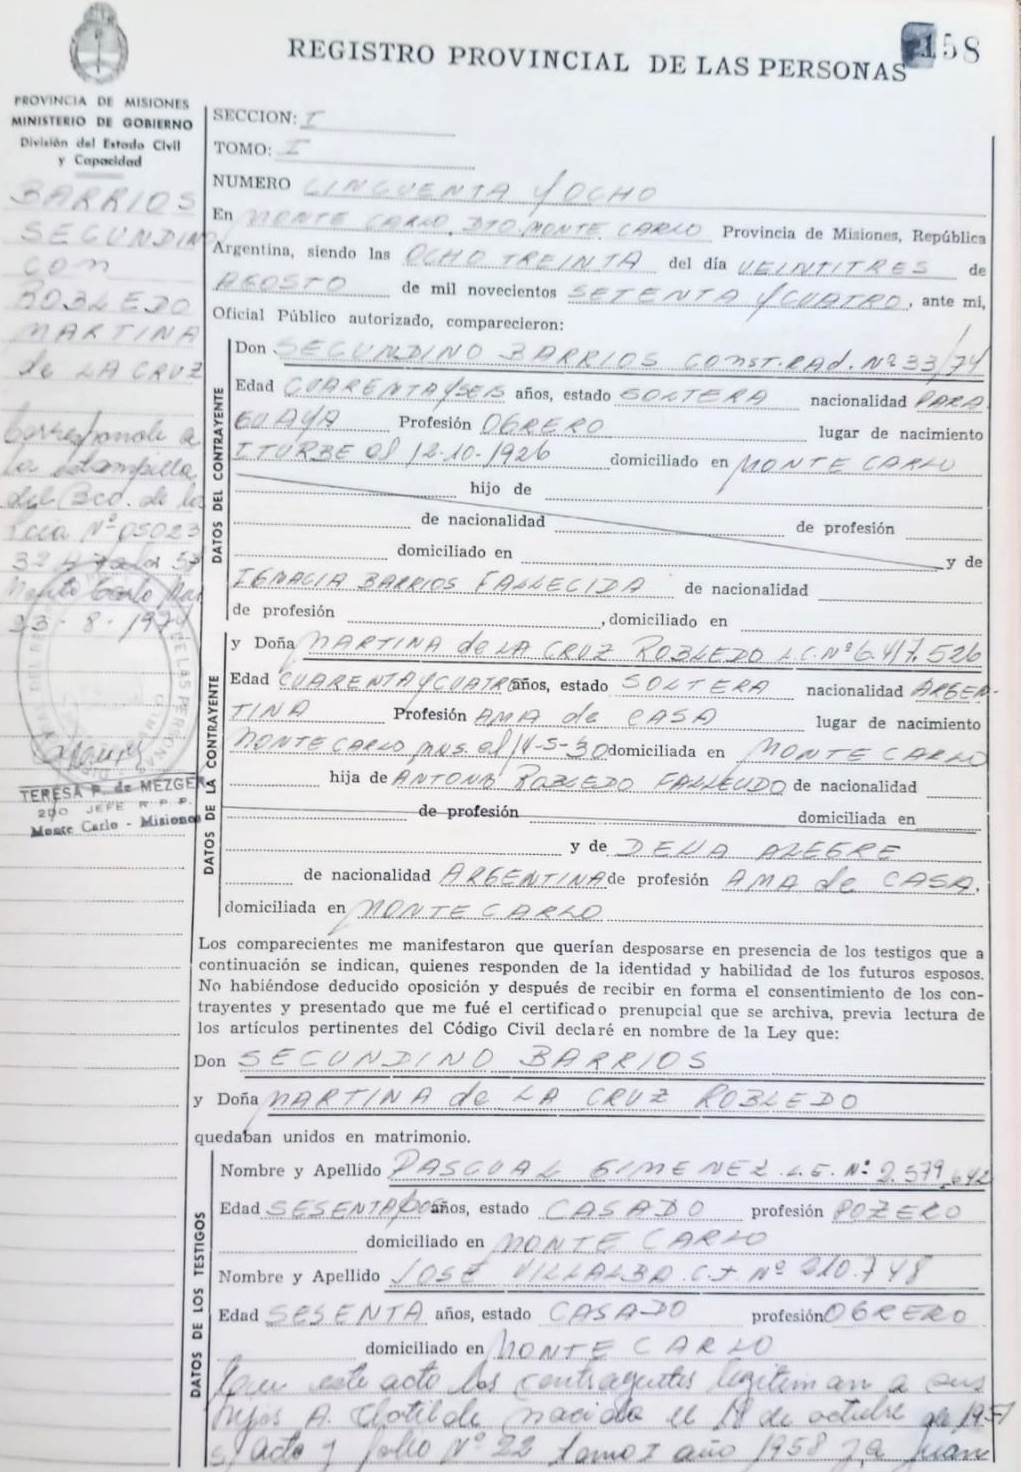 158
REGISTRO PROVINCIAL DE LAS PERSONAS
PROVINCIA DE MISIONES
MINISTERIO DE GOBIERNO
División del Estado Civil
y Capacidad
BARRIOS
SECUNDINO
con
ROBLEDO
MARTINA
de LA CRUZ
Corresponde a
la estampilla
del Bco. de la
Pcia Nº 05023
Monte Carlo
23-8-1974
TERESA P. de MEZGER
JEFE R.P.P.
Monte Carlo - Misiones
SECCION: I
TOMO: I
NUMERO CINCUENTA Y OCHO
En MONTE CARLO, DTO. MONTE CARLO Provincia de Misiones, República
Argentina, siendo las OCHO TREINTA del día VEINTITRES de
AGOSTO de mil novecientos SETENTA Y CUATRO, ante mi,
Oficial Público autorizado, comparecieron:
DATOS DEL CONTRAYENTE
Don SECUNDINO BARRIOS CONST. RAD. Nº 33/74
Edad CUARENTA Y SEIS años, estado SOLTERA nacionalidad PARA
GUAYA Profesión OBRERO lugar de nacimiento
ITURBE el 12-10-1926 domiciliado en MONTE CARLO
hijo de
de nacionalidad de profesión
domiciliado en y de
IGNACIA BARRIOS FALLECIDA de nacionalidad
de profesión , domiciliado en
DATOS DE LA CONTRAYENTE
y Doña MARTINA de LA CRUZ ROBLEDO L.C. Nº 6.417.526
Edad CUARENTA Y CUATRO años, estado SOLTERA nacionalidad ARGEN-
TINA Profesión AMA de CASA lugar de nacimiento
MONTE CARLO MNS. el 14-5-30 domiciliada en MONTE CARLO
hija de ROBLEDO de nacionalidad
de profesión domiciliada en
y de DELIA ALEGRE
de nacionalidad ARGENTINA de profesión AMA de CASA,
domiciliada en MONTE CARLO
Los comparecientes me manifestaron que querían desposarse en presencia de los testigos que a
continuación se indican, quienes responden de la identidad y habilidad de los futuros esposos.
No habiéndose deducido oposición y después de recibir en forma el consentimiento de los con-
trayentes y presentado que me fué el certificado prenupcial que se archiva, previa lectura de
los artículos pertinentes del Código Civil declaré en nombre de la Ley que:
Don SECUNDINO BARRIOS
y Doña MARTINA de LA CRUZ ROBLEDO
quedaban unidos en matrimonio.
DATOS DE LOS TESTIGOS
Nombre y Apellido PASCUAL GIMENEZ L.E. Nº 2.579.642
Edad SESENTA años, estado CASADO profesión POZERO
domiciliado en MONTE CARLO
Nombre y Apellido JOSE VILLALBA C.I. Nº 210.748
Edad SESENTA años, estado CASADO profesión OBRERO
domiciliado en MONTE CARLO
este acto los contrayentes legitiman a sus
hijos A. Clotilde nacida el de octubre de 1957
acta y folio Nº 22 tomo I año 1958 y a Juan